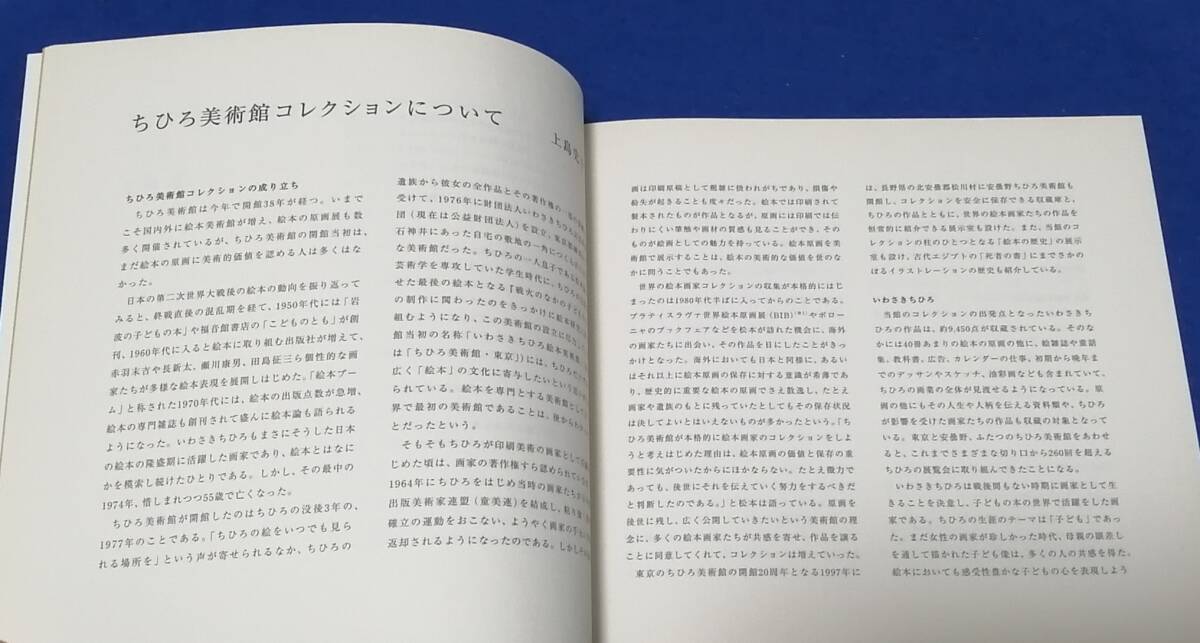 ちひろ美術館コレクションについて
上島史
ちひろ美術館コレクションの成り立ち
ちひろ美術館は今年で開館38年が経つ。いまで
こそ国内外に絵本美術館が増え、絵本の原画展も数
多く開催されているが、ちひろ美術館の開館当初は、
まだ絵本の原画に美術的価値を認める人は多くはな
かった。
日本の第二次世界大戦後の絵本の動向を振り返って
みると、終戦直後の混乱期を経て、1950年代には「岩
波の子どもの本」や福音館書店の「こどものとも」が創
刊、1960年代に入ると絵本に取り組む出版社が増えて、
赤羽末吉や長新太、瀬川康男、田島征三ら個性的な画
家たちが多様な絵本表現を展開しはじめた。「絵本ブー
ム」と称された1970年代には、絵本の出版点数が急増、
絵本の専門雑誌も創刊されて盛んに絵本論も語られる
ようになった。いわさきちひろもまさにそうした日本
の絵本の隆盛期に活躍した画家であり、絵本とはなに
かを模索し続けたひとりである。しかし、その最中の
1974年、惜しまれつつ55歳で亡くなった。
ちひろ美術館が開館したのはちひろの没後3年の、
1977年のことである。「ちひろの絵をいつでも見ら
れる場所を」という声が寄せられるなか、ちひろの
遺族から彼女の全作品とその著作権の一部の
受けて、1976年に財団法人いわさきちひろ
団(現在は公益財団法人)を設立、東京都練
石神井にあった自宅の敷地の一角につくら
な美術館だった。ちひろの一人息子である
芸術学を専攻していた学生時代に、ちひろの
せた最後の絵本となる『戦火のなかの子ども
の制作に関わったのをきっかけに絵本研究に
組むようになり、この美術館の設立に尽力
館当初の名称「いわさきちひろ絵本美術館」
は「ちひろ美術館・東京」)には、ちひろだけ
広く「絵本」の文化に寄与したいという
いる。絵本を専門とする美術館として
界で最初の美術館であることは、後からわ
とだったという。
そもそもちひろが印刷美術の画家として
じめた頃は、画家の著作権すら認められて
1964年にちひろをはじめ当時の画家たちが
出版美術家連盟(童美連)を結成し、粘り強
確立の運動をおこない、ようやく画家の手
返却されるようになったのである。しかし
画は印刷原稿として粗雑に扱われがちであり、損傷や
紛失が起きることも度々だった。絵本では印刷されて
製本されたものが作品となるが、原画には印刷では伝
わりにくい筆触や画材の質感も見ることができ、その
ものが絵画としての魅力を持っている。絵本原画を美
術館で展示することは、絵本の美術的な価値を世のな
かに問うことでもあった。
世界の絵本画家コレクションの収集が本格的にはじ
まったのは1980年代半ばに入ってからのことである。
ブラティスラヴァ世界絵本原画展(BIB)やボロー
ニャのブックフェアなどを松本が訪れた機会に、海外
の画家たちに出会い、その作品を目にしたことがきっ
かけとなった。海外においても日本と同様に、あるい
はそれ以上に絵本原画の保存に対する意識が希薄であ
り、歴史的に重要な絵本の原画でさえ散逸し、たとえ
画家や遺族のもとに残っていたとしてもその保存状況
は決してよいとはいえないものが多かったという。「ち
ひろ美術館が本格的に絵本画家のコレクションをしよ
うと考えはじめた理由は、絵本原画の価値と保存の重
要性に気がついたからにほかならない。たとえ微力で
あっても、後世にそれを伝えていく努力をするべきだ
と判断したのである。」と松本は語っている。原画を
後世に残し、広く公開していきたいという美術館の理
念に、多くの絵本画家たちが共感を寄せ、作品を譲る
ことに同意してくれて、コレクションは増えていった。
東京のちひろ美術館の開館20周年となる1997年に
は、長野県の北安曇郡松川村に安曇野ちひろ美術館も
開館し、コレクションを安全に保存できる収蔵庫と、
ちひろの作品とともに、世界の絵本画家たちの作品を
恒常的に紹介できる展示室も設けた。また、当館のコ
レクションの柱のひとつとなる「絵本の歴史」の展示
室も設け、古代エジプトの「死者の書」にまでさかの
ぼるイラストレーションの歴史も紹介している。
いわさきちひろ
当館のコレクションの出発点となったいわさきちひ
ろの作品は、約9,450点が収蔵されている。そのなか
には40冊あまりの絵本の原画の他に、絵雑誌や童話
集、教科書、広告、カレンダーの仕事、初期から晩年ま
でのデッサンやスケッチ、油彩画なども含まれていて、
ちひろの画業の全体が見渡せるようになっている。原
画の他にもその人生や人柄を伝える資料類や、ちひろ
が影響を受けた画家たちの作品も収蔵の対象となって
いる。東京と安曇野、ふたつのちひろ美術館をあわせ
ると、これまでさまざまな切り口から260回を超える
ちひろの展覧会に取り組んできたことになる。
いわさきちひろは戦後間もない時期に画家として生
きることを決意し、子どもの本の世界で活躍をした画
家である。ちひろの生涯のテーマは「子ども」であっ
た。まだ女性の画家が珍しかった時代、母親の眼差し
を通して描かれた子ども像は、多くの人の共感を得た。
絵本においても感受性豊かな子どもの心を表現しよう